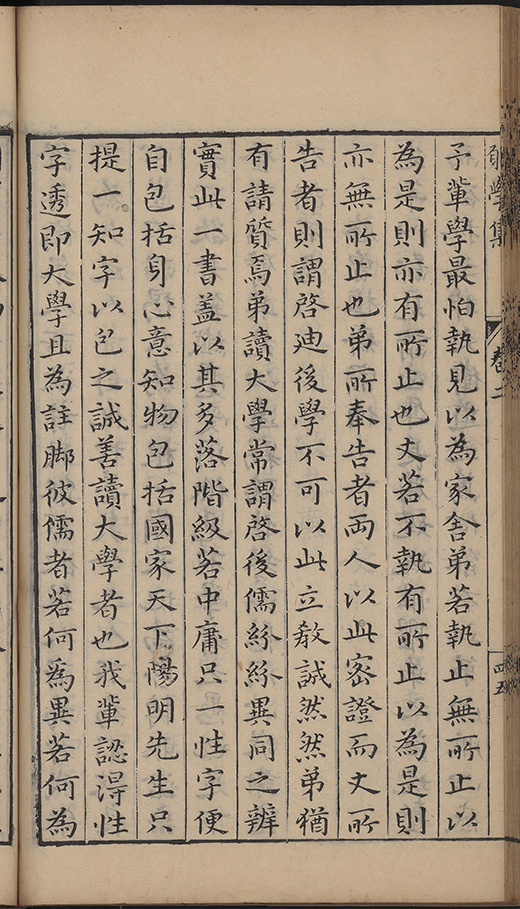 學集
卷二
四五
予輩學最怕執見以為家舍弟若執止無所止以
為是則亦有所止也丈若不執有所止以為是則
亦無所止也弟所奉告者兩人以此密證而丈所
告者則謂啓迪後學不可以此立教誠然然弟猶
有請質焉弟讀大學常謂啓後儒紛紛異同之辨
實此一書盖以其多落階級若中庸只一性字便
自包括身心意知物包括國家天下陽明先生只
提一知字以包之誠善讀大學者也我輩認得性
字透即大學且為註脚彼儒者若何為異若何為